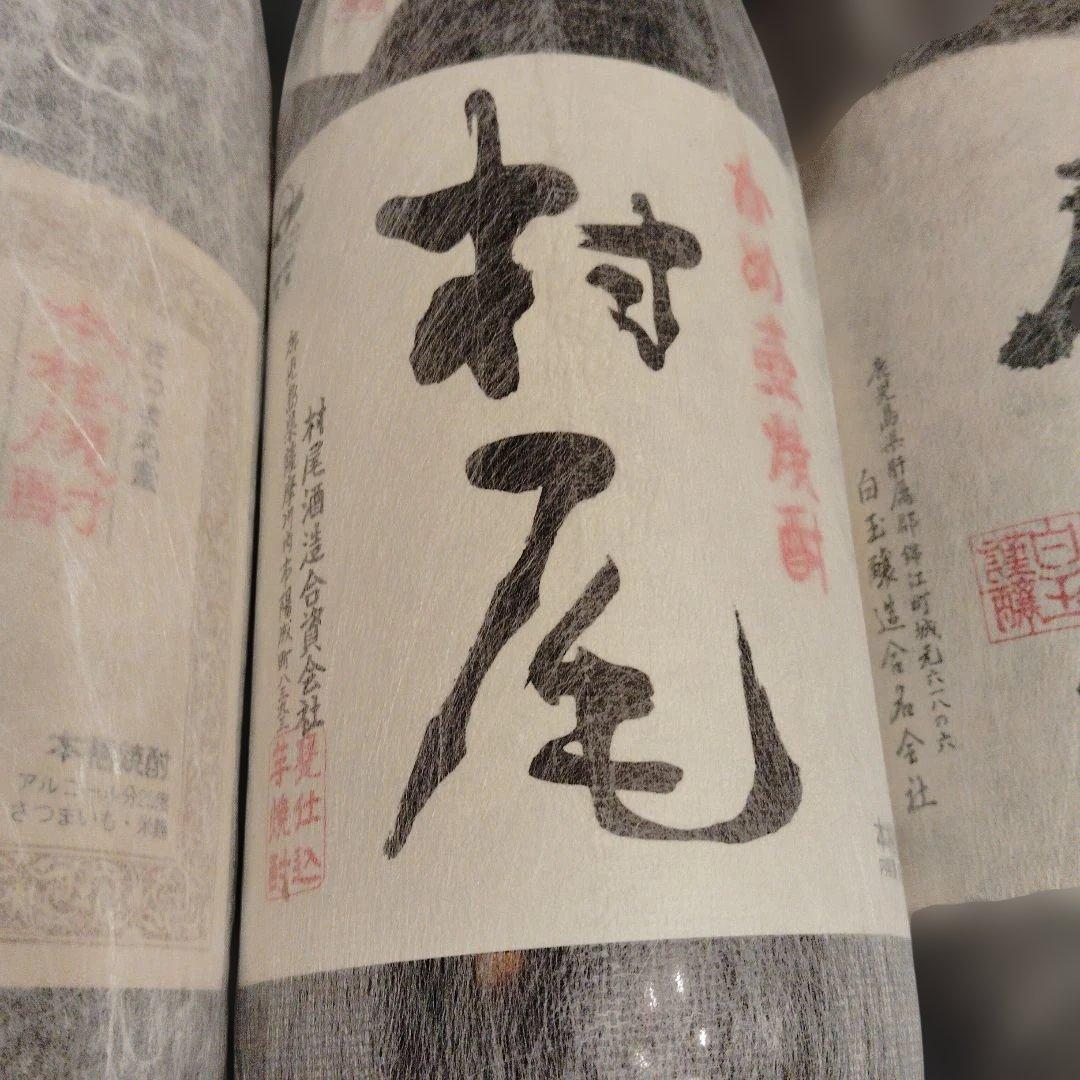 村尾
村尾酒造合資会社
鹿児島県薩摩川内市陽成町八三九三
甕仕込
芋焼酎
本格焼酎
本格焼酎
アルコール分25度
さつまいも・米麹
白玉
謹醸
鹿児島県肝属郡錦江町城元六一八の六
白玉醸造合名会社